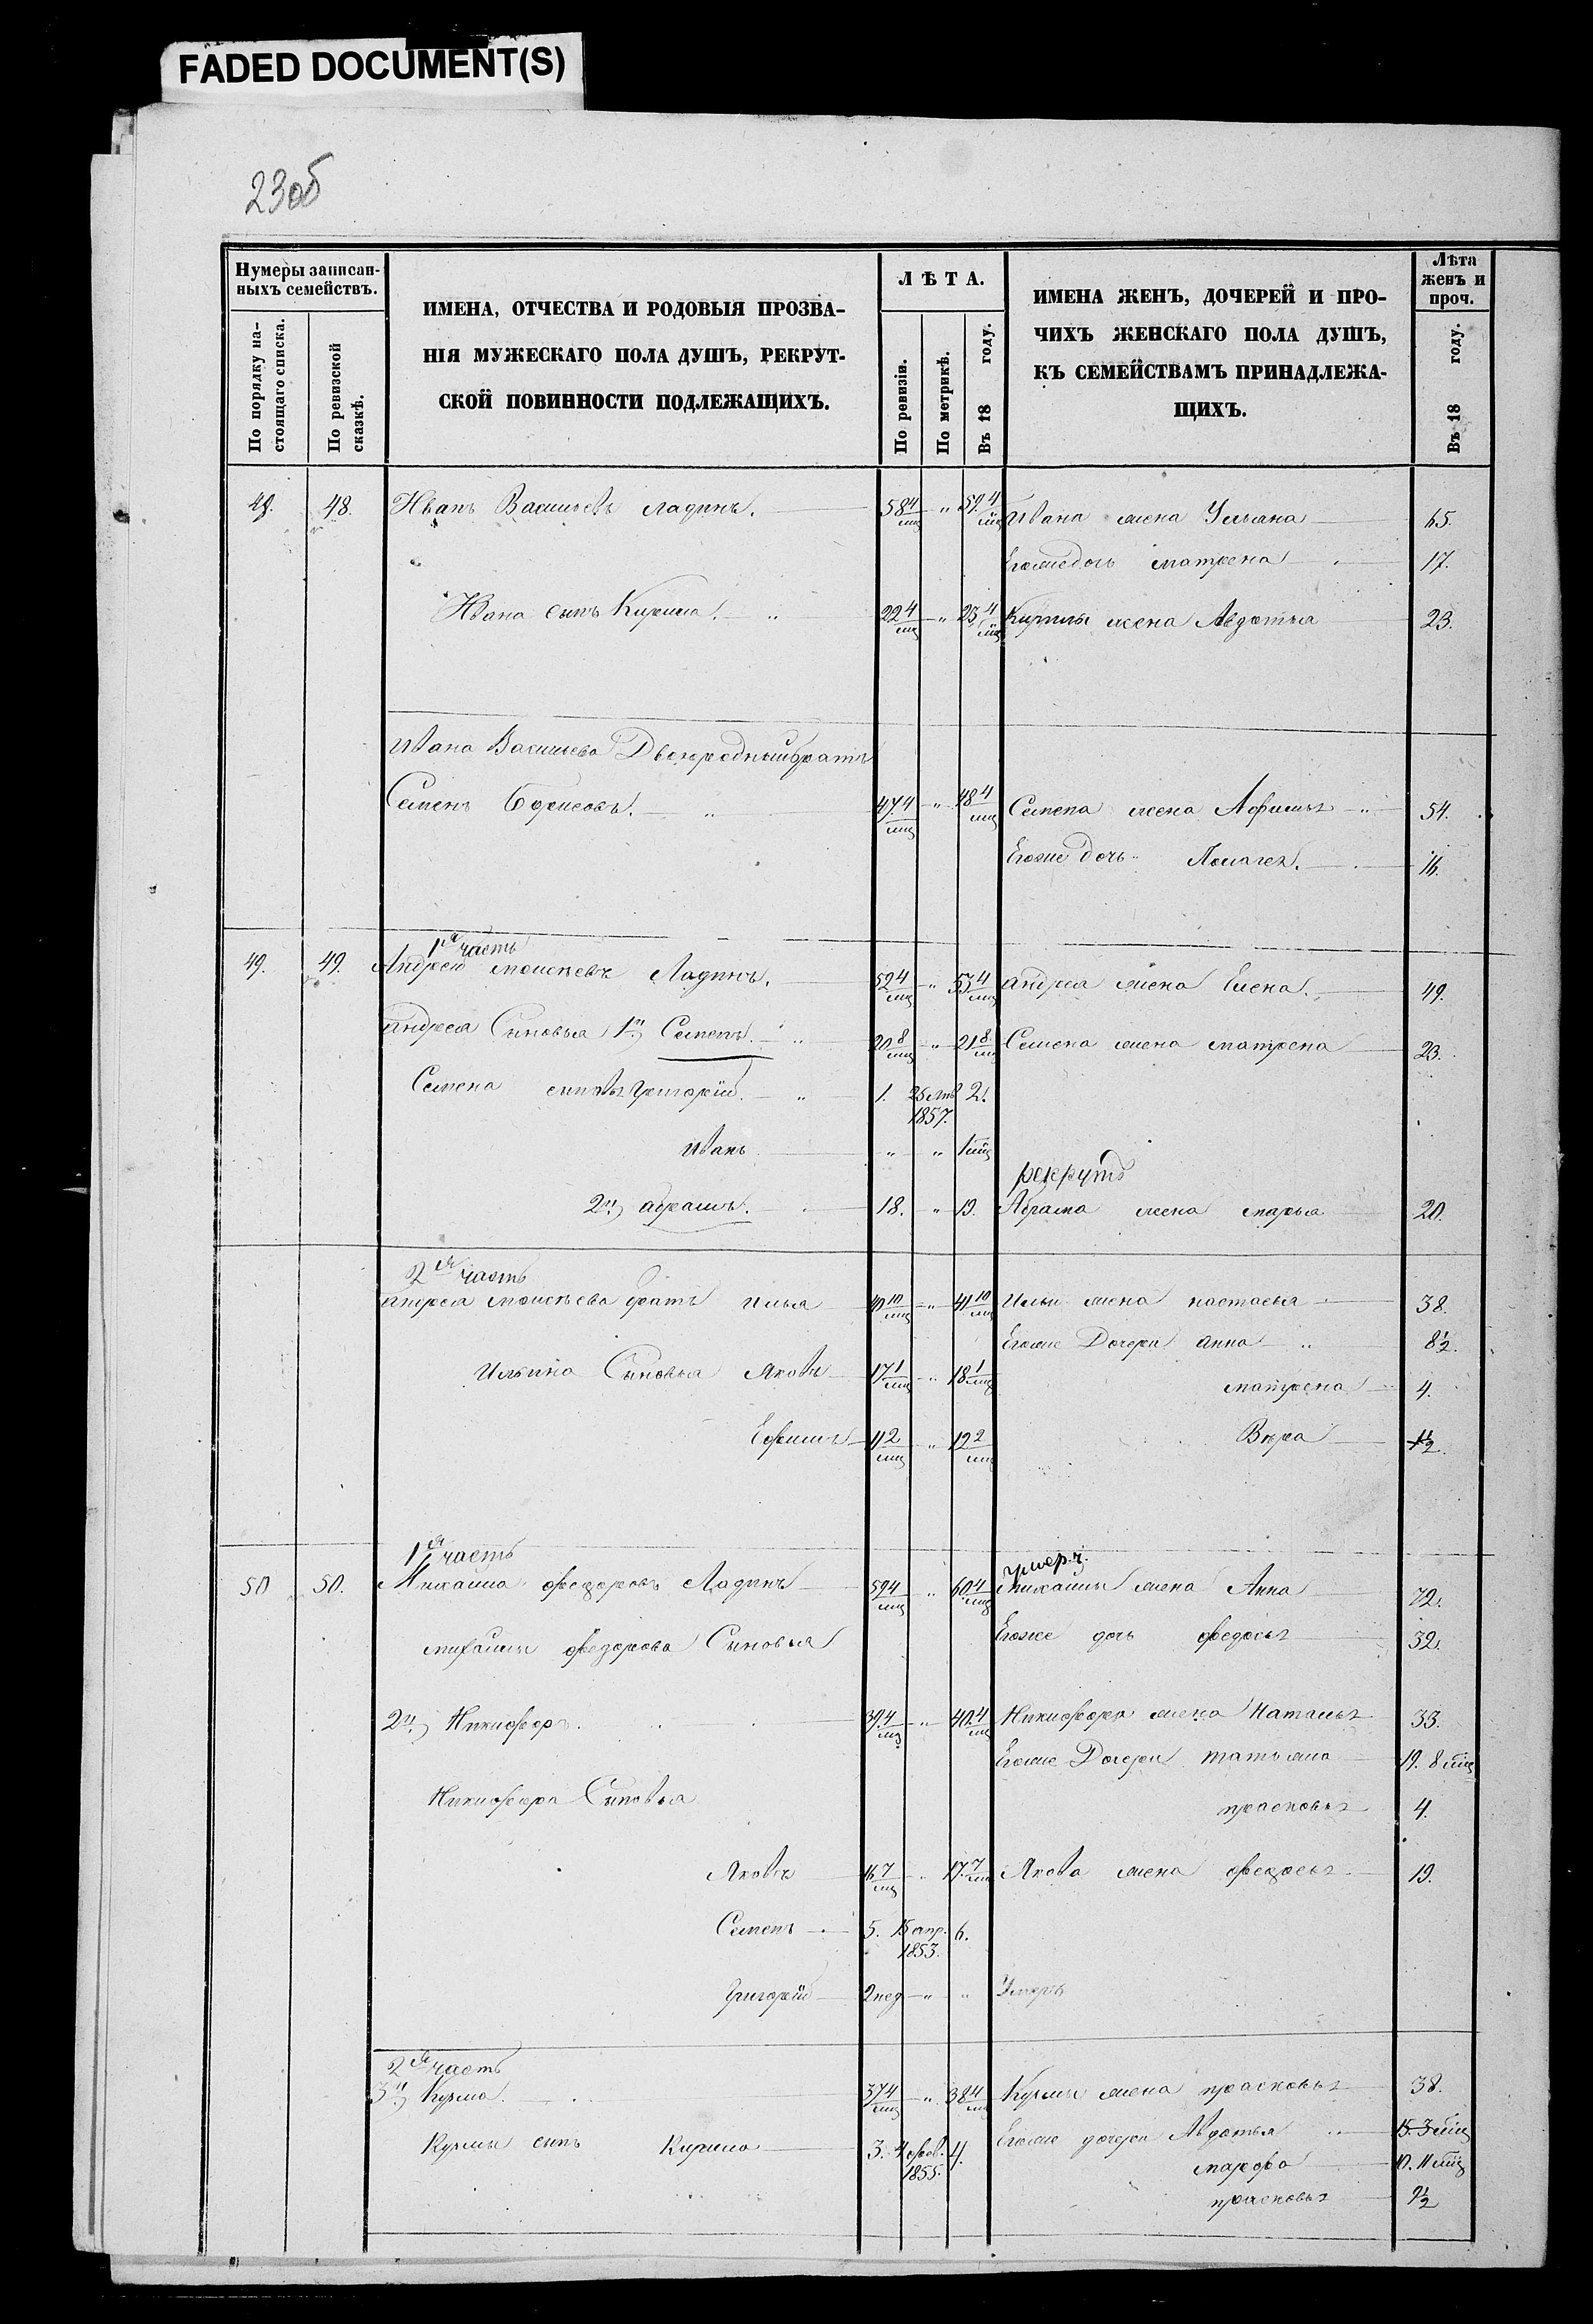 FADED DOCUMENT(S)
23об
Нумеры записан-
ныхъ семействъ.
По порядку на-
стоящаго списка.
По ревизской
сказкѣ.
ИМЕНА, ОТЧЕСТВА И РОДОВЫЯ ПРОЗВА-
НІЯ МУЖЕСКАГО ПОЛА ДУШЪ, РЕКРУТ-
СКОЙ ПОВИННОСТИ ПОДЛЕЖАЩИХЪ.
ЛѢТА.
По ревизіи.
По метрикѣ.
Въ 18 году.
ИМЕНА ЖЕНЪ, ДОЧЕРЕЙ И ПРО-
ЧИХЪ ЖЕНСКАГО ПОЛА ДУШЪ,
КЪ СЕМЕЙСТВАМЪ ПРИНАДЛЕЖА-
ЩИХЪ.
Лѣта
женъ и
проч.
Въ 18 году.
48. 48. Иванъ Васильевъ Ладинъ. 58 4/мц " 59 4/мц Ивана жена Ульяна 65.
Егоже дочь матрена 17.
Ивана сынъ Кирила. 22 4/мц " 23 4/мц Кирилы жена Авдотья 23.
Ивана Васильева Двоюродный братъ
Семенъ Борисовъ. 47 4/мц " 48 4/мц Семена жена Афимья 54.
Егоже дочь Пелагея. 16.
1я часть
49. 49. Андрей моисѣевъ Ладинъ. 52 4/мц " 53 4/мц андрея жена Елена. 49.
андрея Сыновья 1й) Семенъ. 20 8/мц " 21 8/мц Семена жена матрена 23.
Семена сыновья григорій. 1. 25 янв 1857. 2.
Иванъ " " 1 мц
рекрутъ
2й) абрамъ. 18. " 19. Абрама жена марья 20.
2я часть
андрея моисѣева братъ илья 40 10/мц " 41 10/мц Ильи жена настасья 38.
Егоже Дочери анна 8½.
Ильина Сыновья Яковъ 17 1/мц " 18 1/мц
матрена 4.
Ефимъ 11 2/мц " 12 2/мц Вѣра ½.
1я часть
умерч.
50 50. Михаила федоровъ Ладинъ 59 4/мц " 60 4/мц михаилы жена Анна 72.
михаилы федорова Сыновья Егоже дочь федосья 32.
2й) Никифоръ. 39 4/мц " 40 4/мц Никифора жена Наталья 33.
Егоже Дочери татьяна 19. 8 мц
Никифора Сыновья прасковья 4.
Яковъ 16 7/мц 17 7/мц Якова жена федосья 19.
Семенъ 5. 15 апр. 1853. 6.
Григорій 2 нед " " Умеръ
2я часть
3й) Кузма. 37 4/мц " 38 4/мц Кузмы жена прасковья 38.
Кузмы сынъ Кирило 3. 4 фев. 1855. 4. Егоже дочери Авдотья 15. 3 мц
марфа 10. 11 мц
прасковья 9½